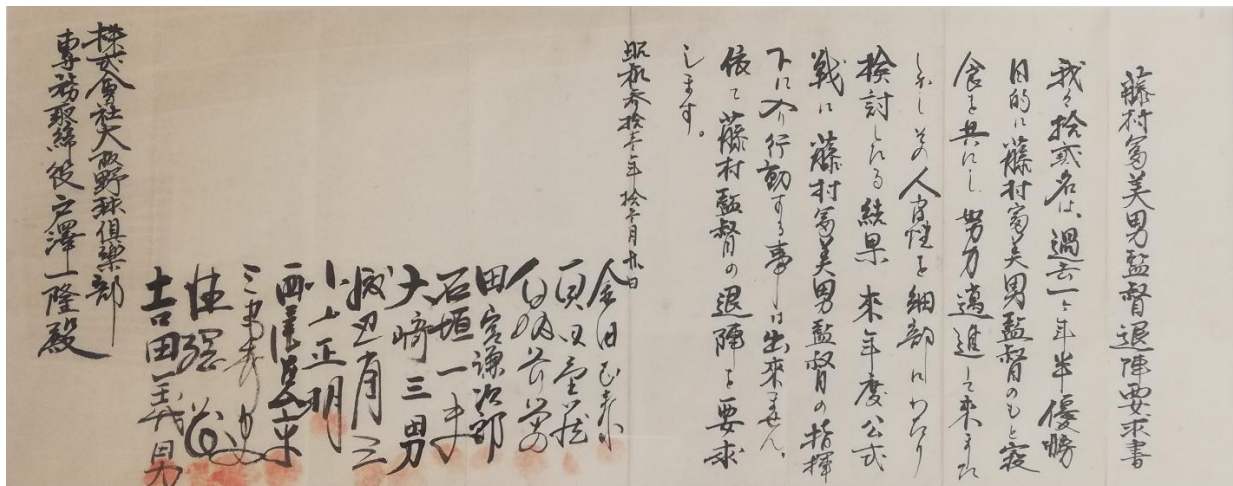 藤村冨美男監督退陣要求書
我々拾弐名は、過去一ヶ年半優勝
目的に藤村冨美男監督のもと寝
食を共にし努力邁進して来ました
しかしその人間性を細部にわたり
検討したる結果来年度公式
戦に藤村冨美男監督の指揮
下に入り行動する事は出来ません。
依て藤村監督の退陣を要求
します。
昭和参拾壱年拾壱月
金田正泰
真田重蔵
田宮謙次郎
石垣一夫
大崎三男
渡辺省三
小山正明
吉田義男
株式會社大阪野球倶樂部
専務取締役戸澤一隆殿